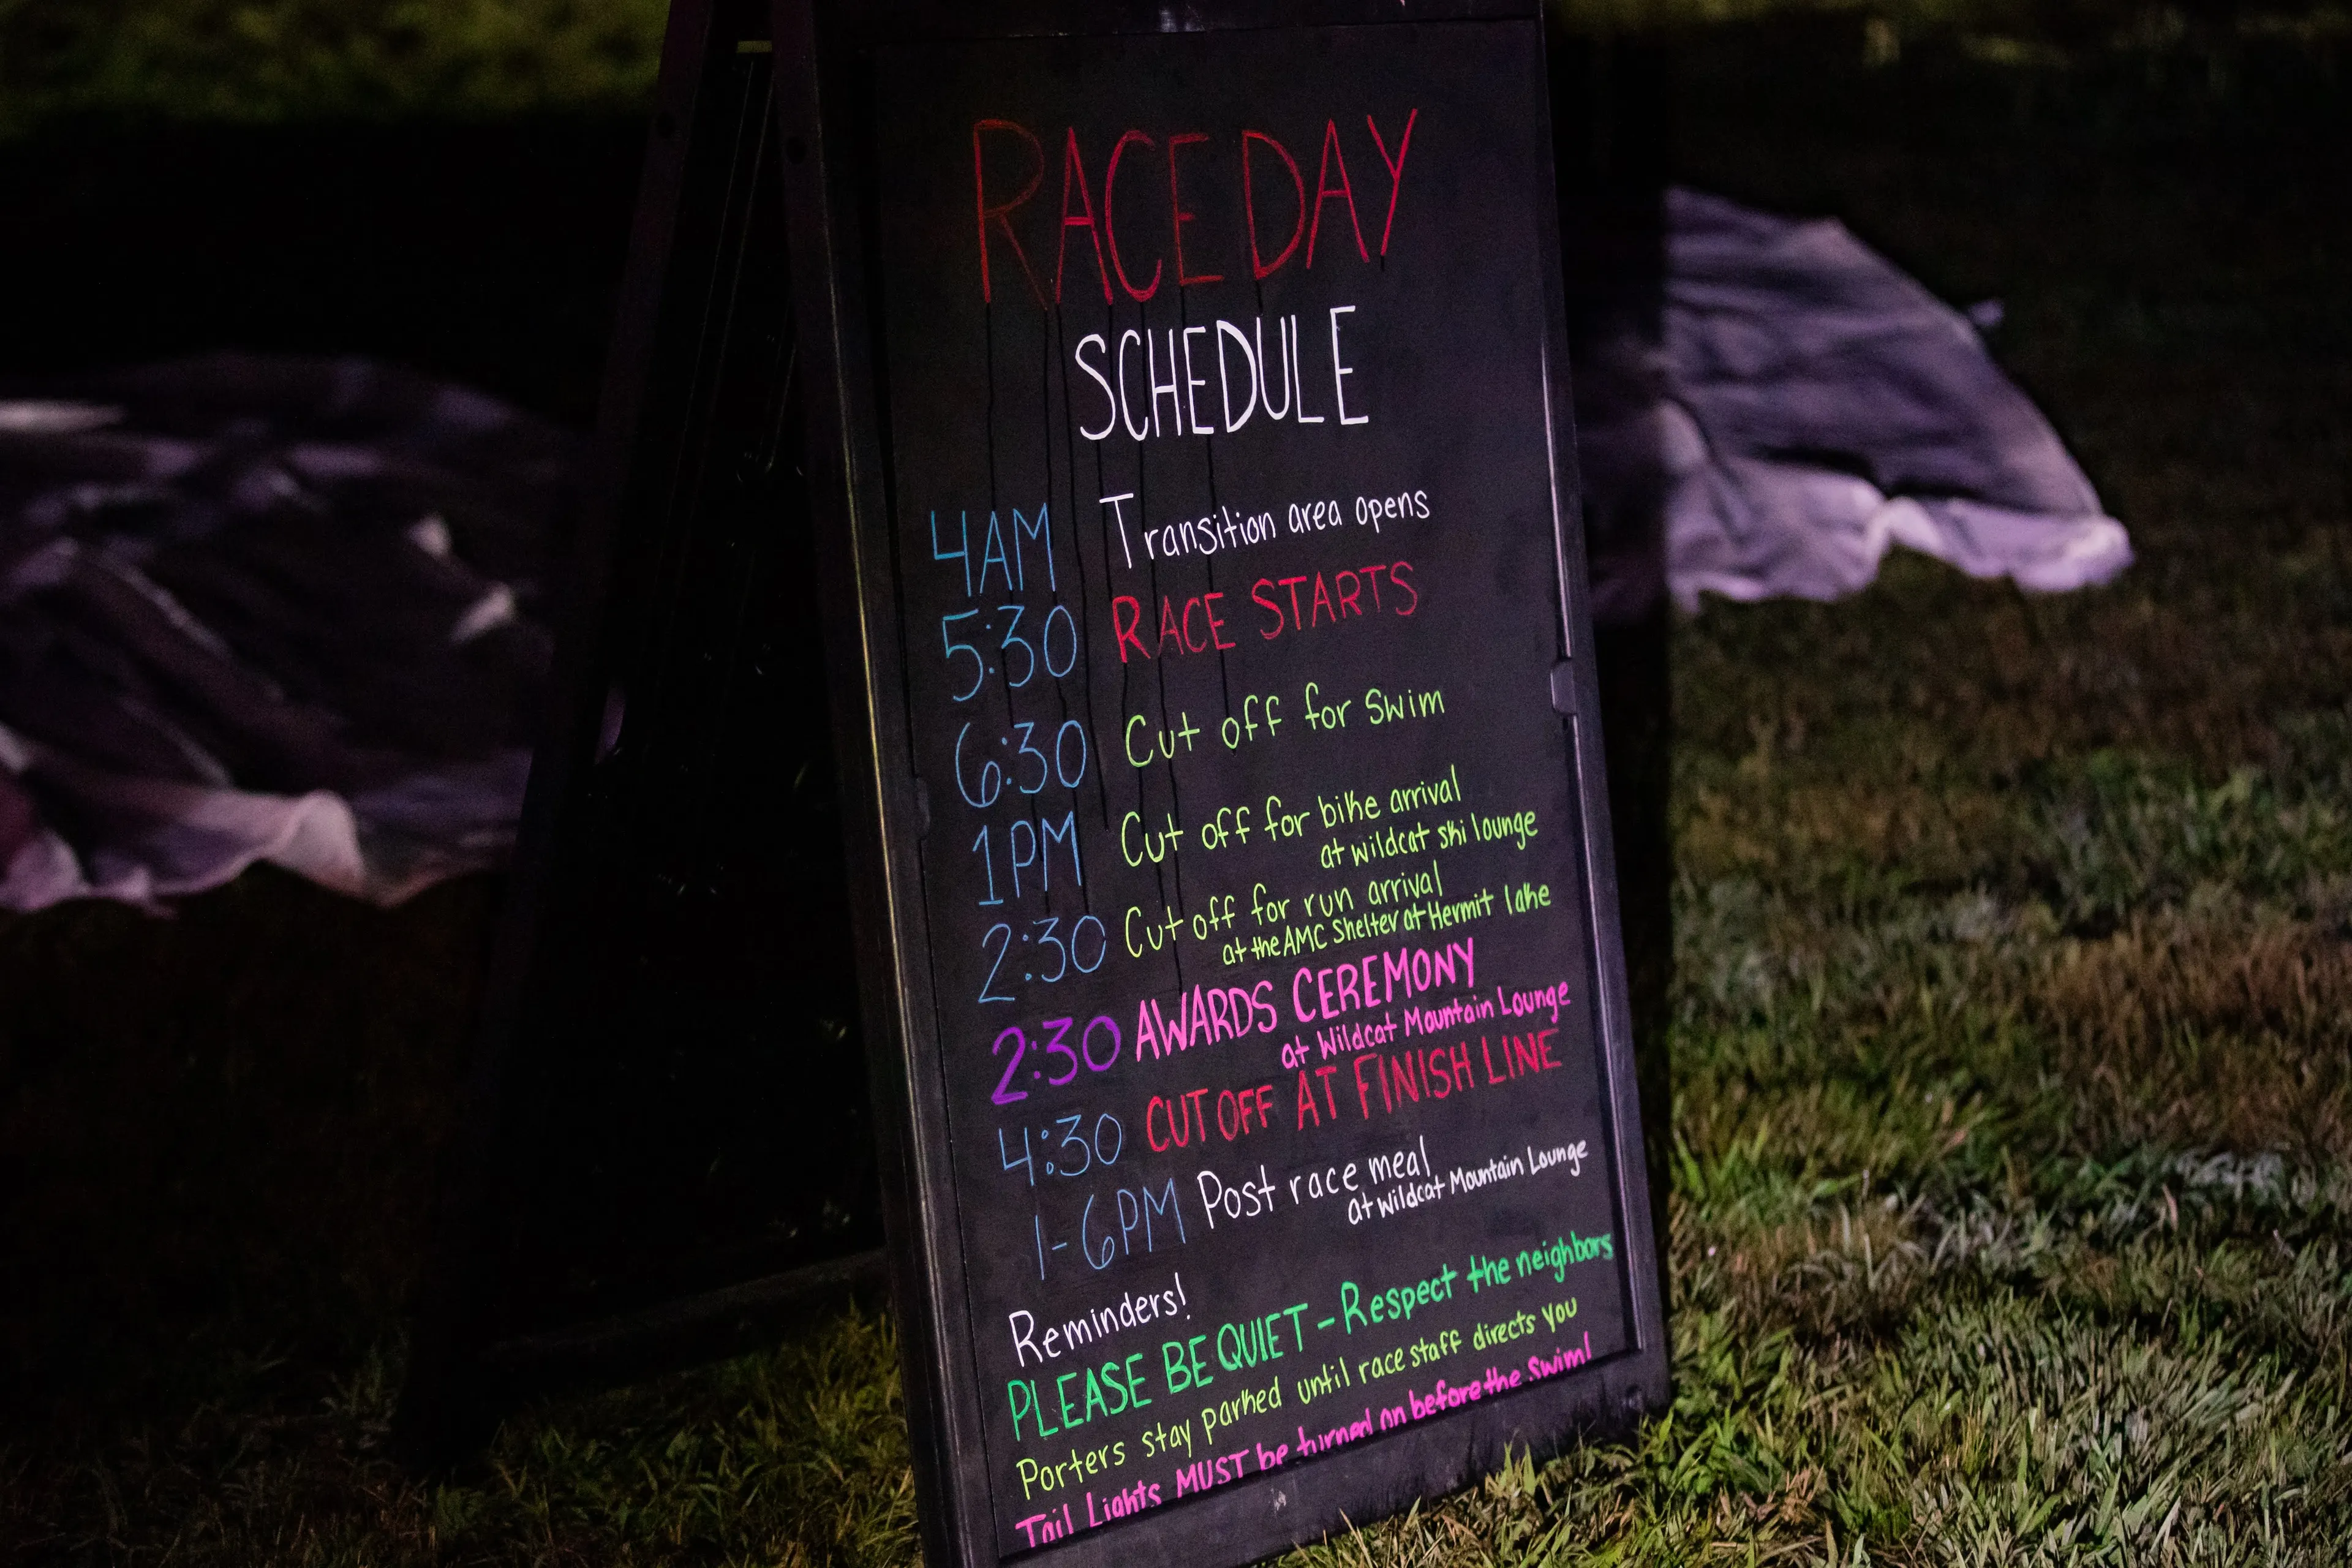 RACE DAY
SCHEDULE
4AM Transition area opens
5:30 RACE STARTS
6:30 Cut off for Swim
1PM Cut off for bike arrival
at wildcat ski lounge
2:30 Cut off for run arrival
at the AMC Shelter at Hermit lake
2:30 AWARDS CEREMONY
at Wildcat Mountain Lounge
4:30 CUT OFF AT FINISH LINE
1-6PM Post race meal
at Wildcat Mountain Lounge
Reminders!
PLEASE BE QUIET - Respect the neighbors
Porters stay parked until race staff directs you
Tail Lights MUST be turned on before the Swim!